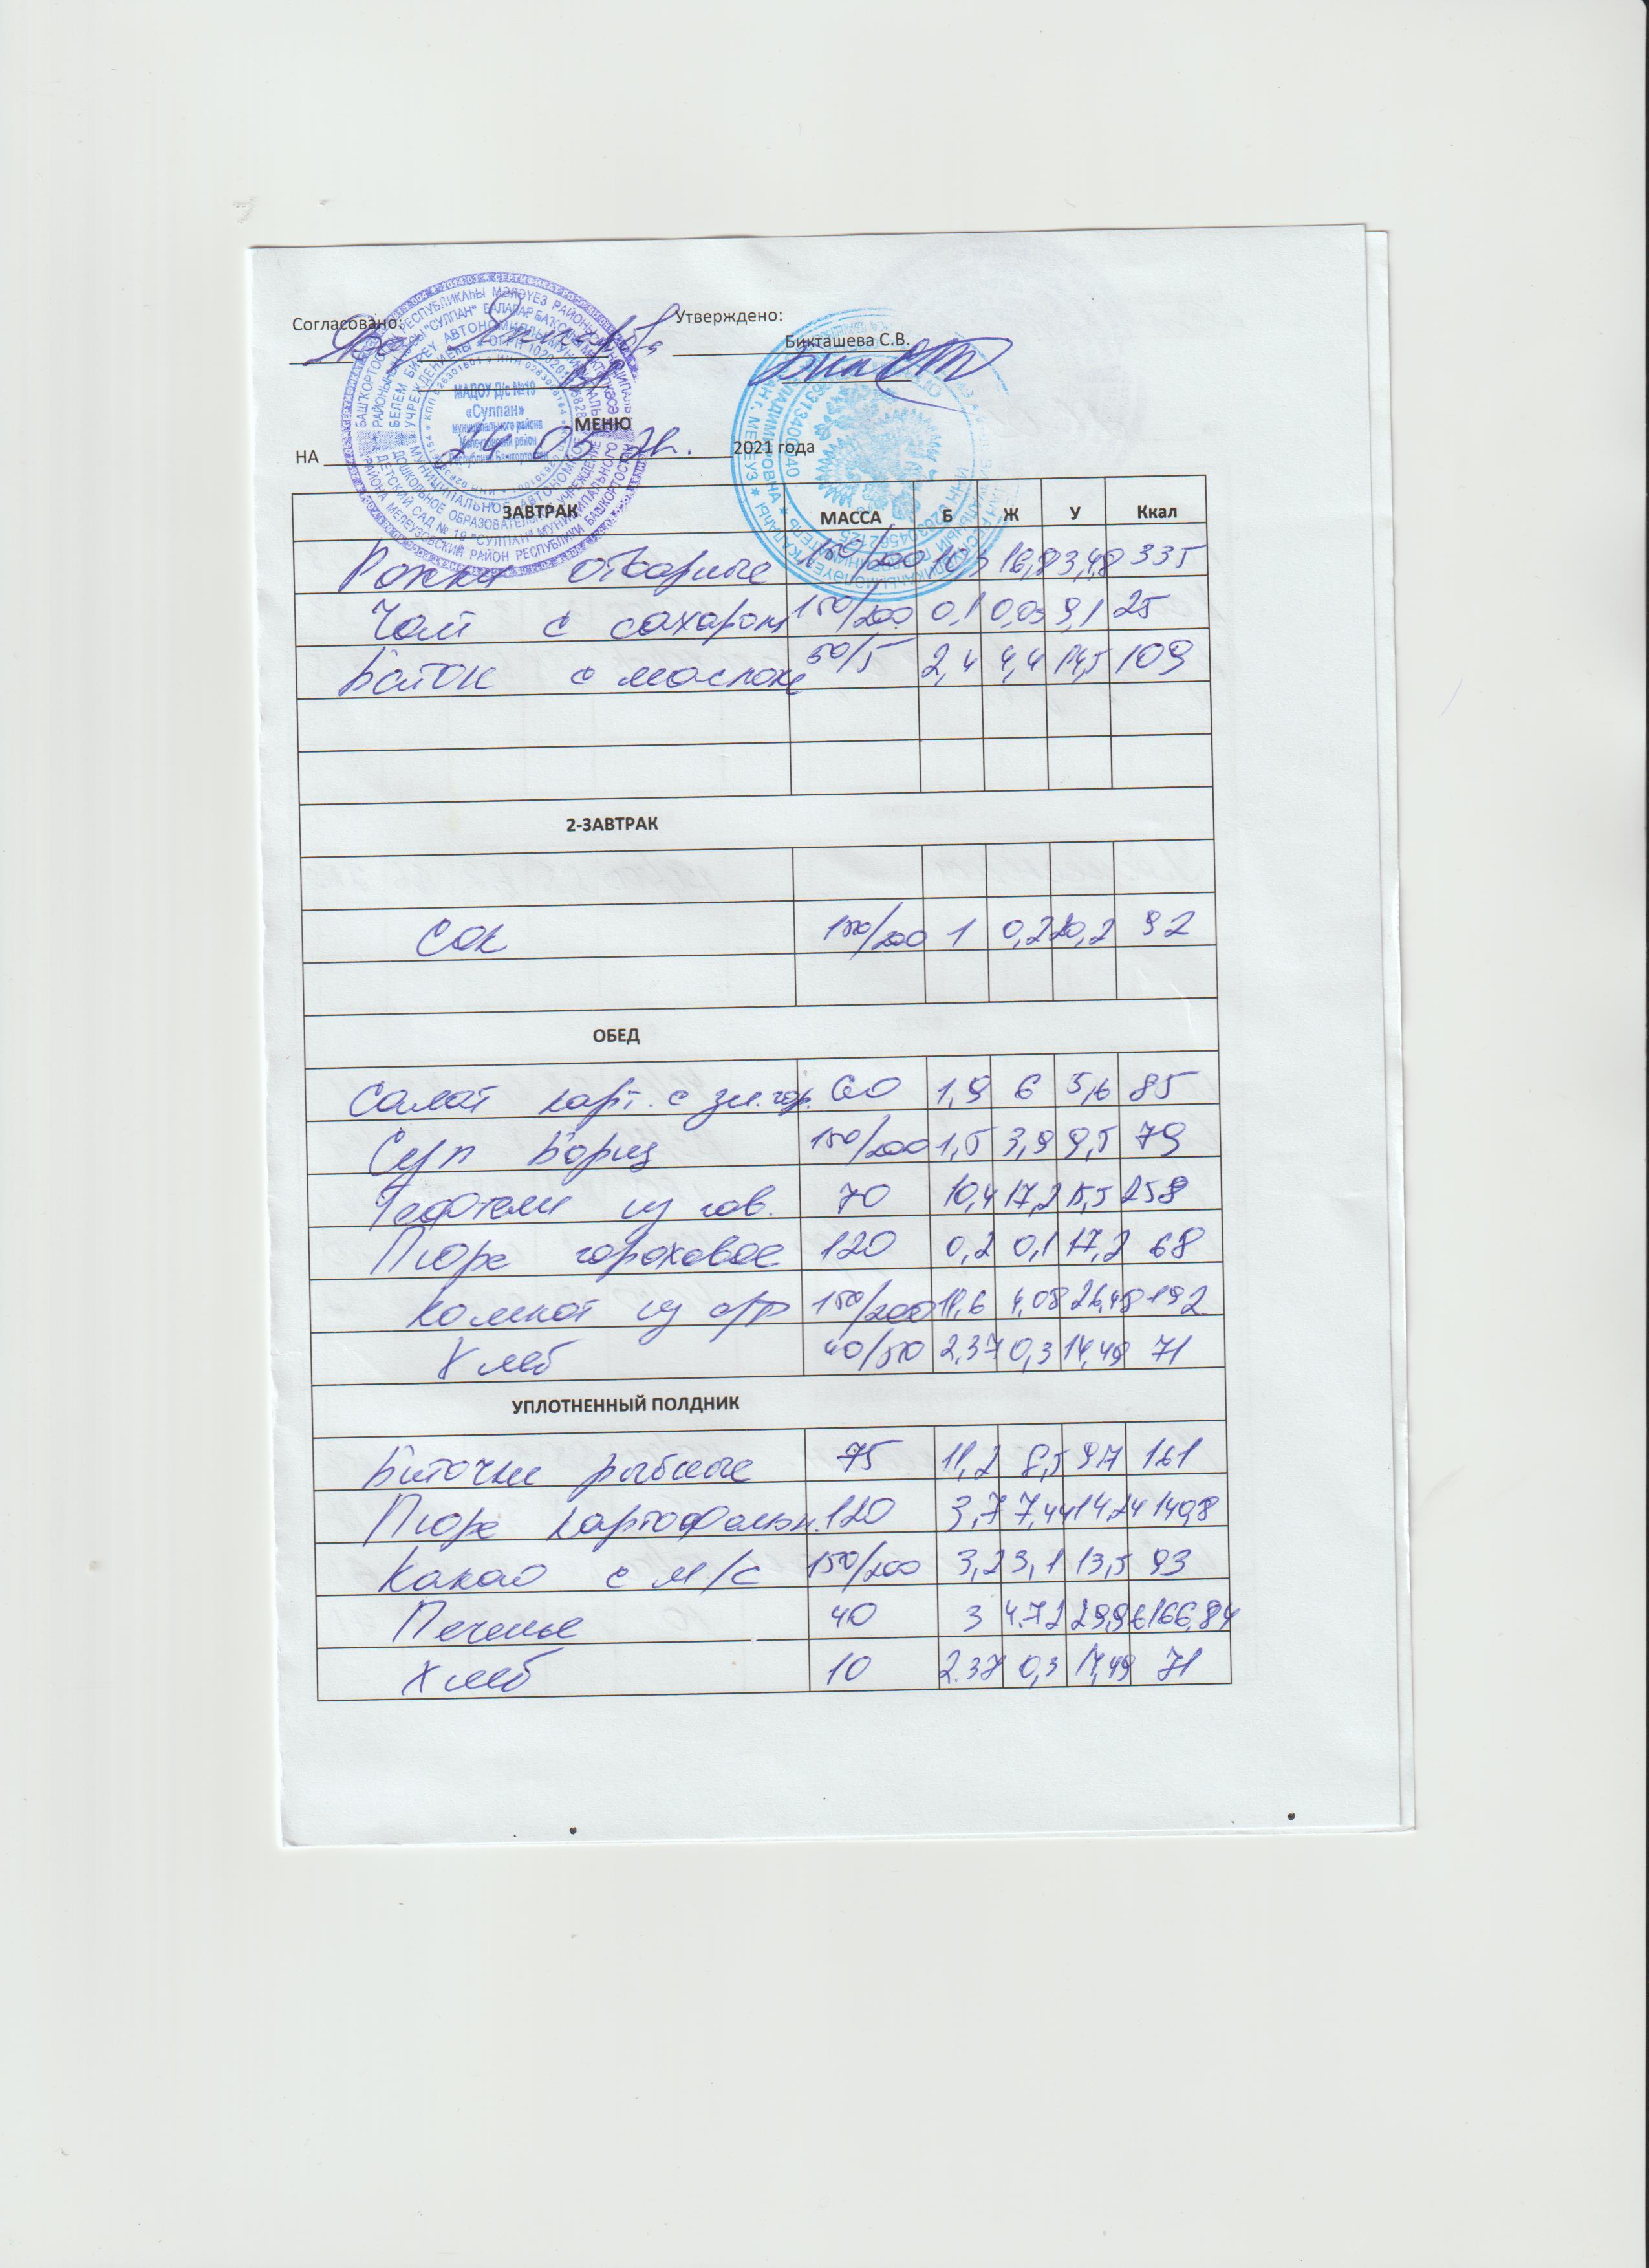 Согласовано:
Утверждено:
Бикташева С.В.
МАДОУ Д/с №19
«Сулпан»
муниципального района
Мелеузовский район
Республики Башкортостан
МЕНЮ
НА 24 05 2021 года
ЗАВТРАК МАССА Б Ж У Ккал
Рожки отварные 150/200 16,8 335
Чай с сахаром 150/200 0,1 0,03 9,1 25
Батон с маслом 50/5 2,4 4,4 14,5 109
2-ЗАВТРАК
Сок 150/200 1 0,2 20,2 92
ОБЕД
Салат карт. с зл. гор. 60 1,9 6 5,6 85
Суп Борщ 150/200 1,5 3,9 9,5 79
Тефтели из гов. 70 10,4 17,2 15,5 258
Пюре гороховое 120 0,2 0,1 17,2 68
Компот из с/ф 150/200 11,6 4,08 26,48 192
Хлеб 40/50 2.37 0,3 14,49 71
УПЛОТНЕННЫЙ ПОЛДНИК
Биточки рыбные 75 11,2 8,5 9,7 161
Пюре картофельн. 120 3,7 7,44 14,24 140,8
Какао с м/с 150/200 3,2 3,1 13,5 93
Печенье 40 3 4.72 29,96 166,84
Хлеб 10 2.37 0,3 17,49 71